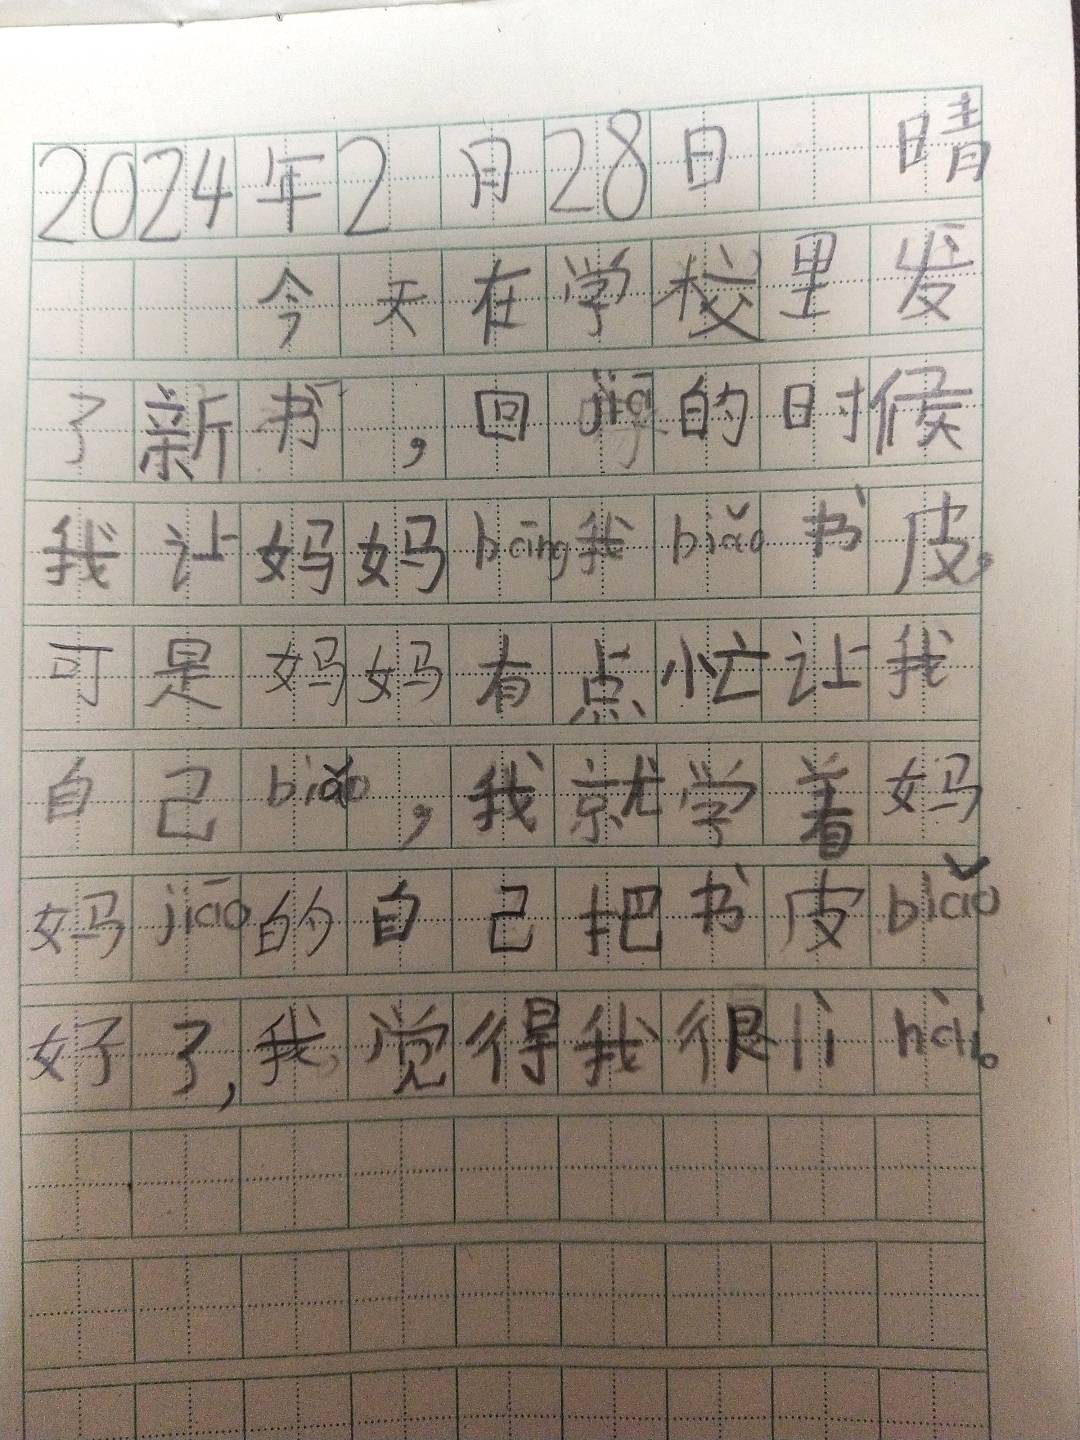 2024年2月28日 晴
今天在学校里发
了新书,回jiā的时候
我让妈妈bāng我biǎo书皮,
可是妈妈有点忙让我
自己biǎo,我就学着妈
妈jiāo的自己把书皮biǎo
好了,我觉得我很lì hài。